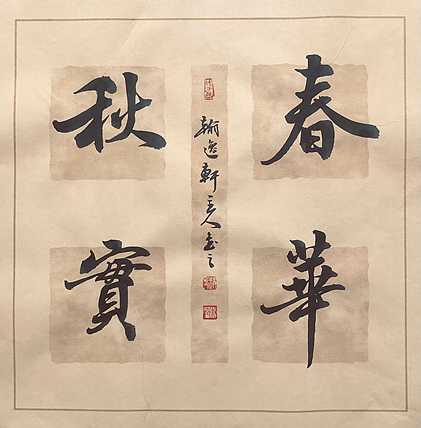 春華
秋實
翰逸軒主人書之